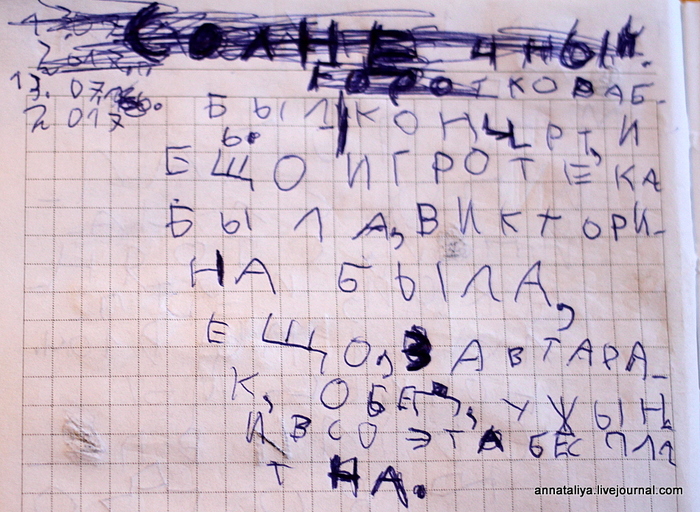 СОЛНЕЧНЫЙ.
13.07.
2017
ГОРОТКОРАБ-
БЫЛ КОНЦЕРТ, И
БЩО ИГРОТЕКА
БЫЛА, ВИКТОРИ-
НА БЫЛА,
ЕЩО, ЗАВТАРА-
К, ОБЕД, УЖЫН,
И ВСО ЭТА БЕСПЛА
ТНА.
annataliya.livejournal.com